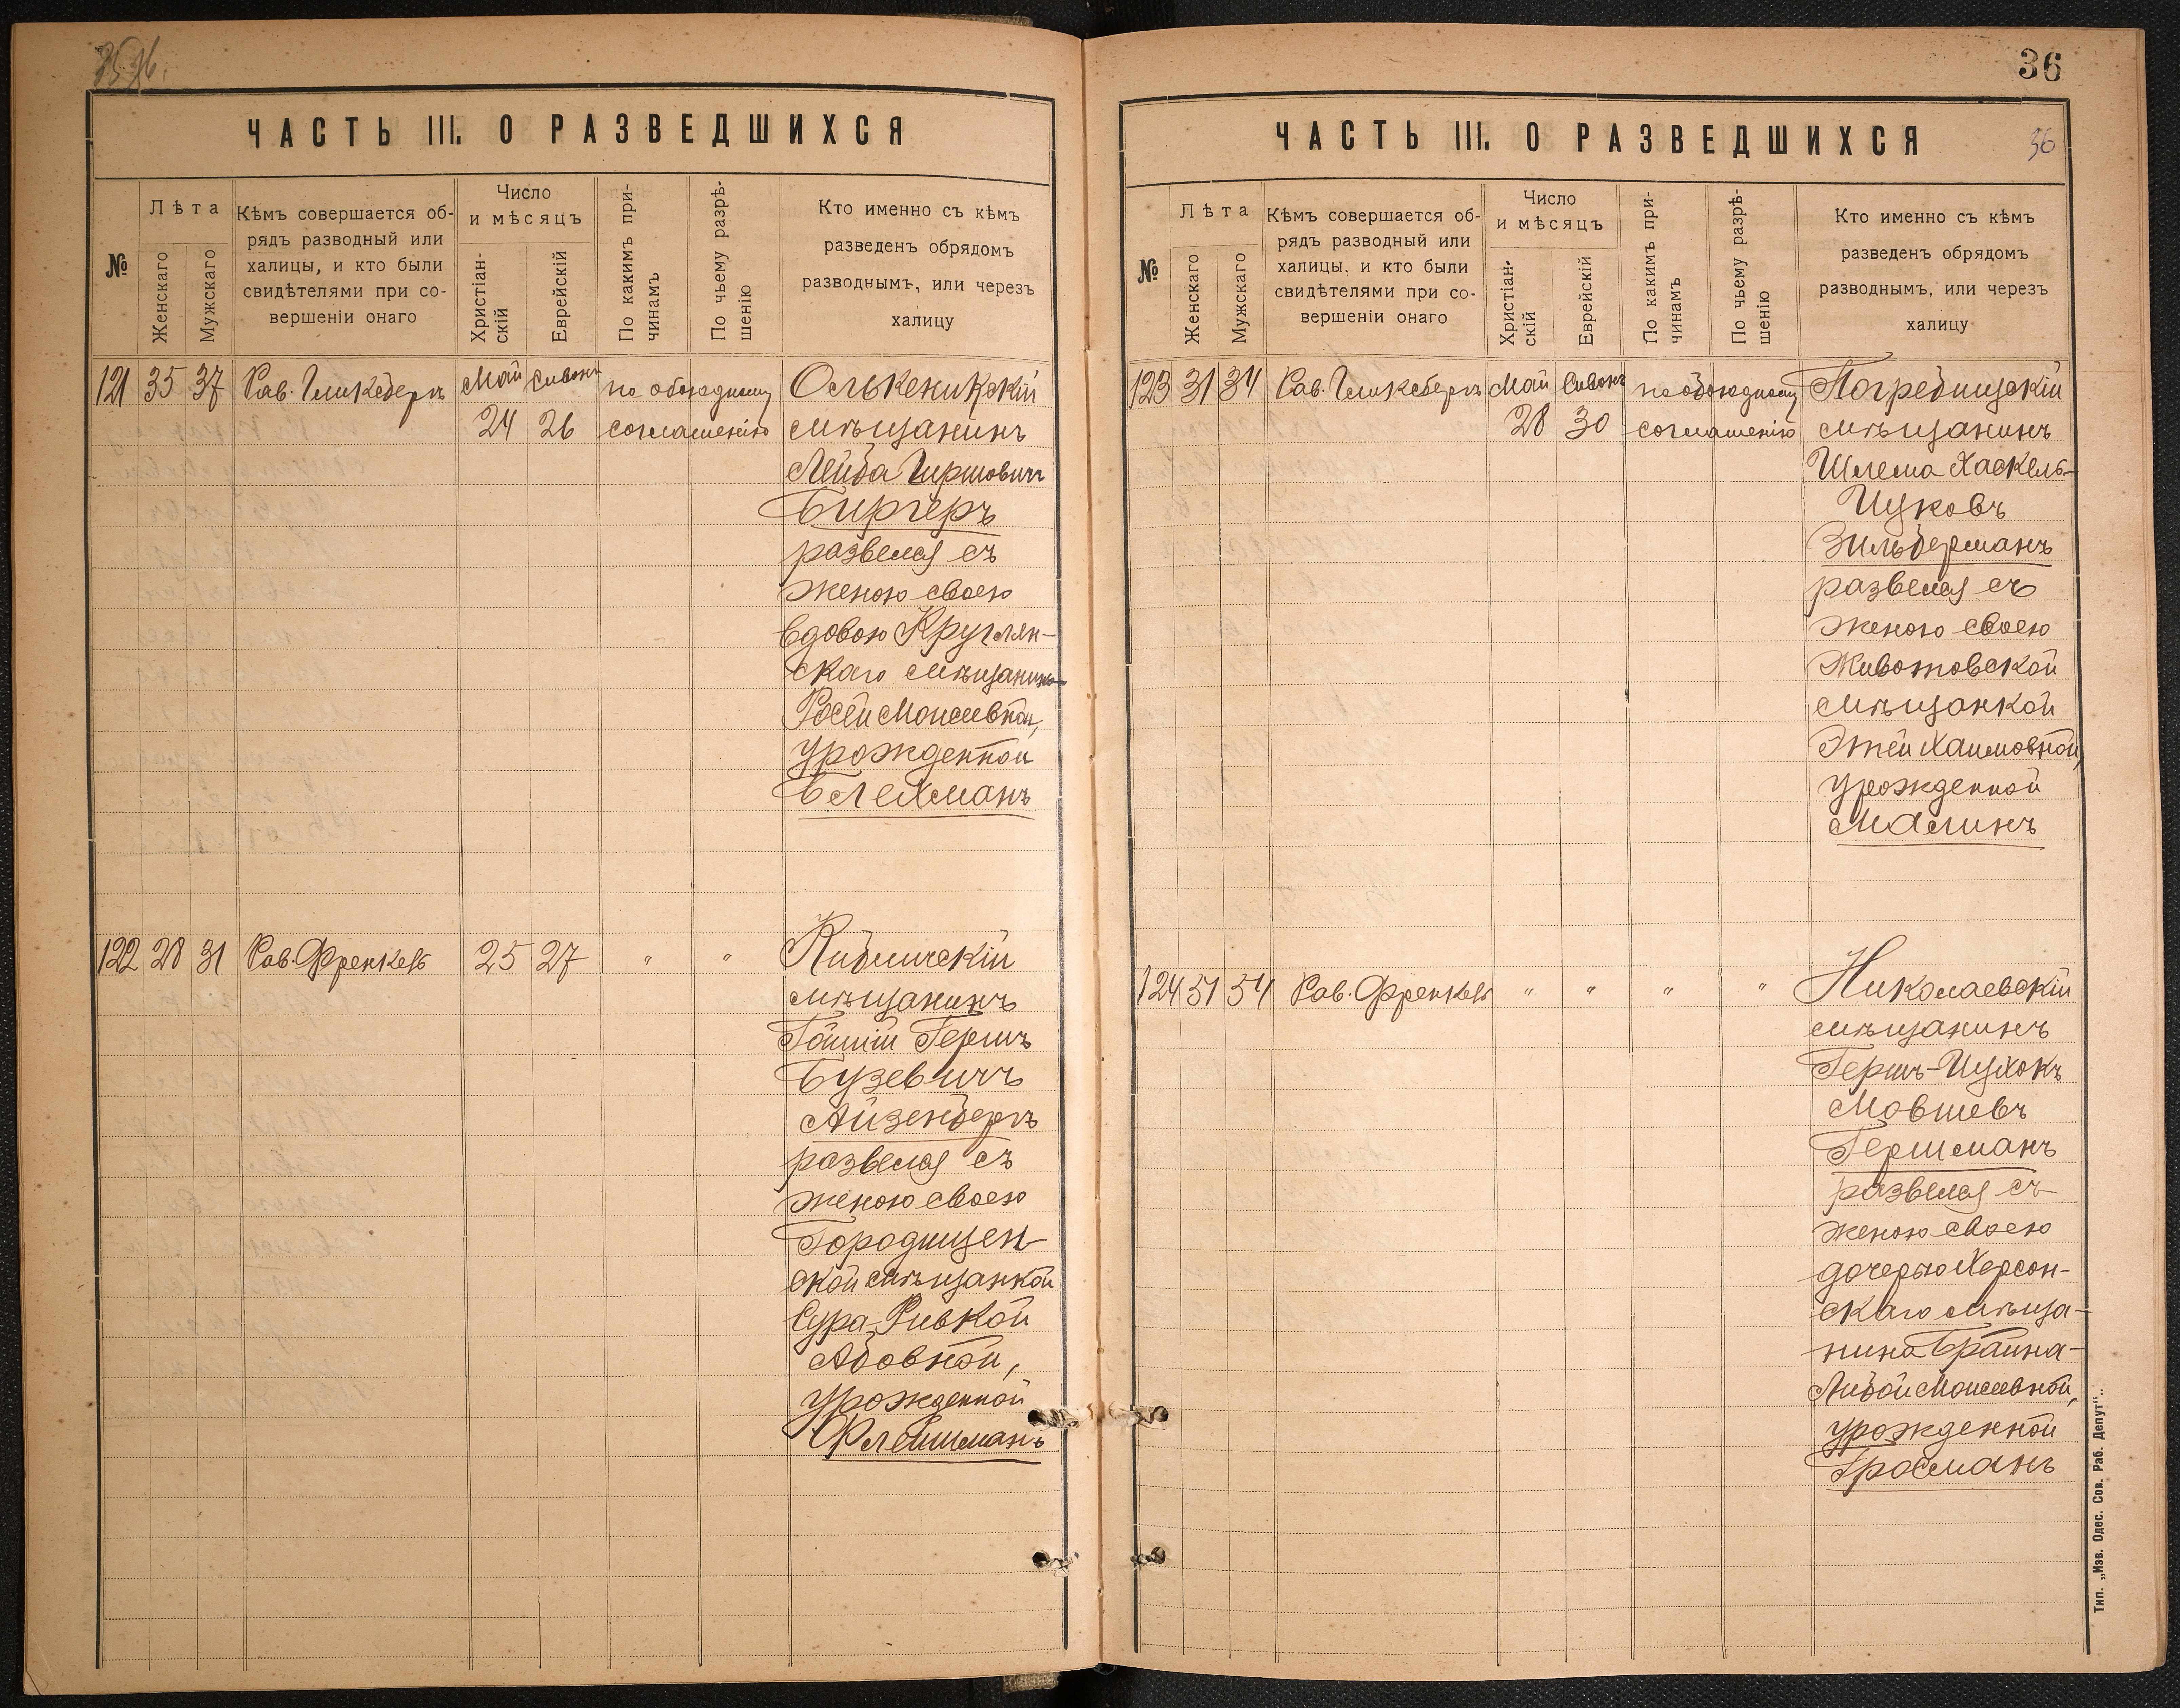 36
ЧАСТЬ III. О РАЗВЕДШИХСЯ
№
Лѣта
Женскаго
Мужскаго
Кѣмъ совершается об-
рядъ разводный или
халицы, и кто были
свидѣтелями при со-
вершеніи онаго
Число
и мѣсяцъ
Христіан-
скій
Еврейскій
По какимъ при-
чинамъ
По чьему разрѣ-
шенію
Кто именно съ кѣмъ
разведенъ обрядомъ
разводнымъ, или черезъ
халицу
121 35 37 Рав. Гликсбергъ Май Сивонъ по обоюдному Олькеникскій
24 26 соглашенію мѣщанинъ
Лейба Гиршовичъ
Биргеръ
развелся съ
женою своею
вдовою Круглян-
скаго мѣщанина
Росей Моисеевной,
урожденной
Блехманъ
122 28 31 Рав. Френкель 25 27 " " Кибличскій
мѣщанинъ
Гершъ
Бузевичъ
Айзенбергъ
развелся съ
женою своею
Городищен-
ской мѣщанкой
Сура-Ривкой
Абовной,
урожденной
Флейшманъ
36
ЧАСТЬ III. О РАЗВЕДШИХСЯ
36
№
Лѣта
Женскаго
Мужскаго
Кѣмъ совершается об-
рядъ разводный или
халицы, и кто были
свидѣтелями при со-
вершеніи онаго
Число
и мѣсяцъ
Христіан-
скій
Еврейскій
По какимъ при-
чинамъ
По чьему разрѣ-
шенію
Кто именно съ кѣмъ
разведенъ обрядомъ
разводнымъ, или черезъ
халицу
123 31 34 Рав. Гликсбергъ Май Сивонъ по обоюдному Погребищскій
28 30 соглашенію мѣщанинъ
Шлема Хаскель-
Ицковъ
Зильберманъ
развелся съ
женою своею
Животовской
мѣщанкой
Этей Хаимовной,
урожденной
Малинъ
124 51 54 Рав. Френкель " " " " Николаевскій
мѣщанинъ
Гершъ-Ицхокъ
Мовшевъ
Гершманъ
развелся съ
женою своею
дочерью Херсон-
скаго мѣща-
нина Брайна-
Либой Моисеевной,
урожденной
Гросманъ
Тип. „Изв. Одес. Сов. Раб. Депут“.